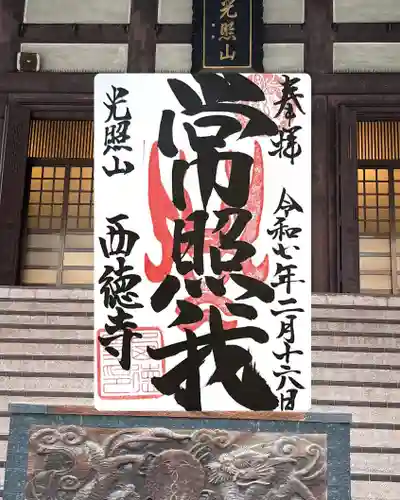 光照山
奉拝
令和七年二月十六日
常照我
光照山
西徳寺